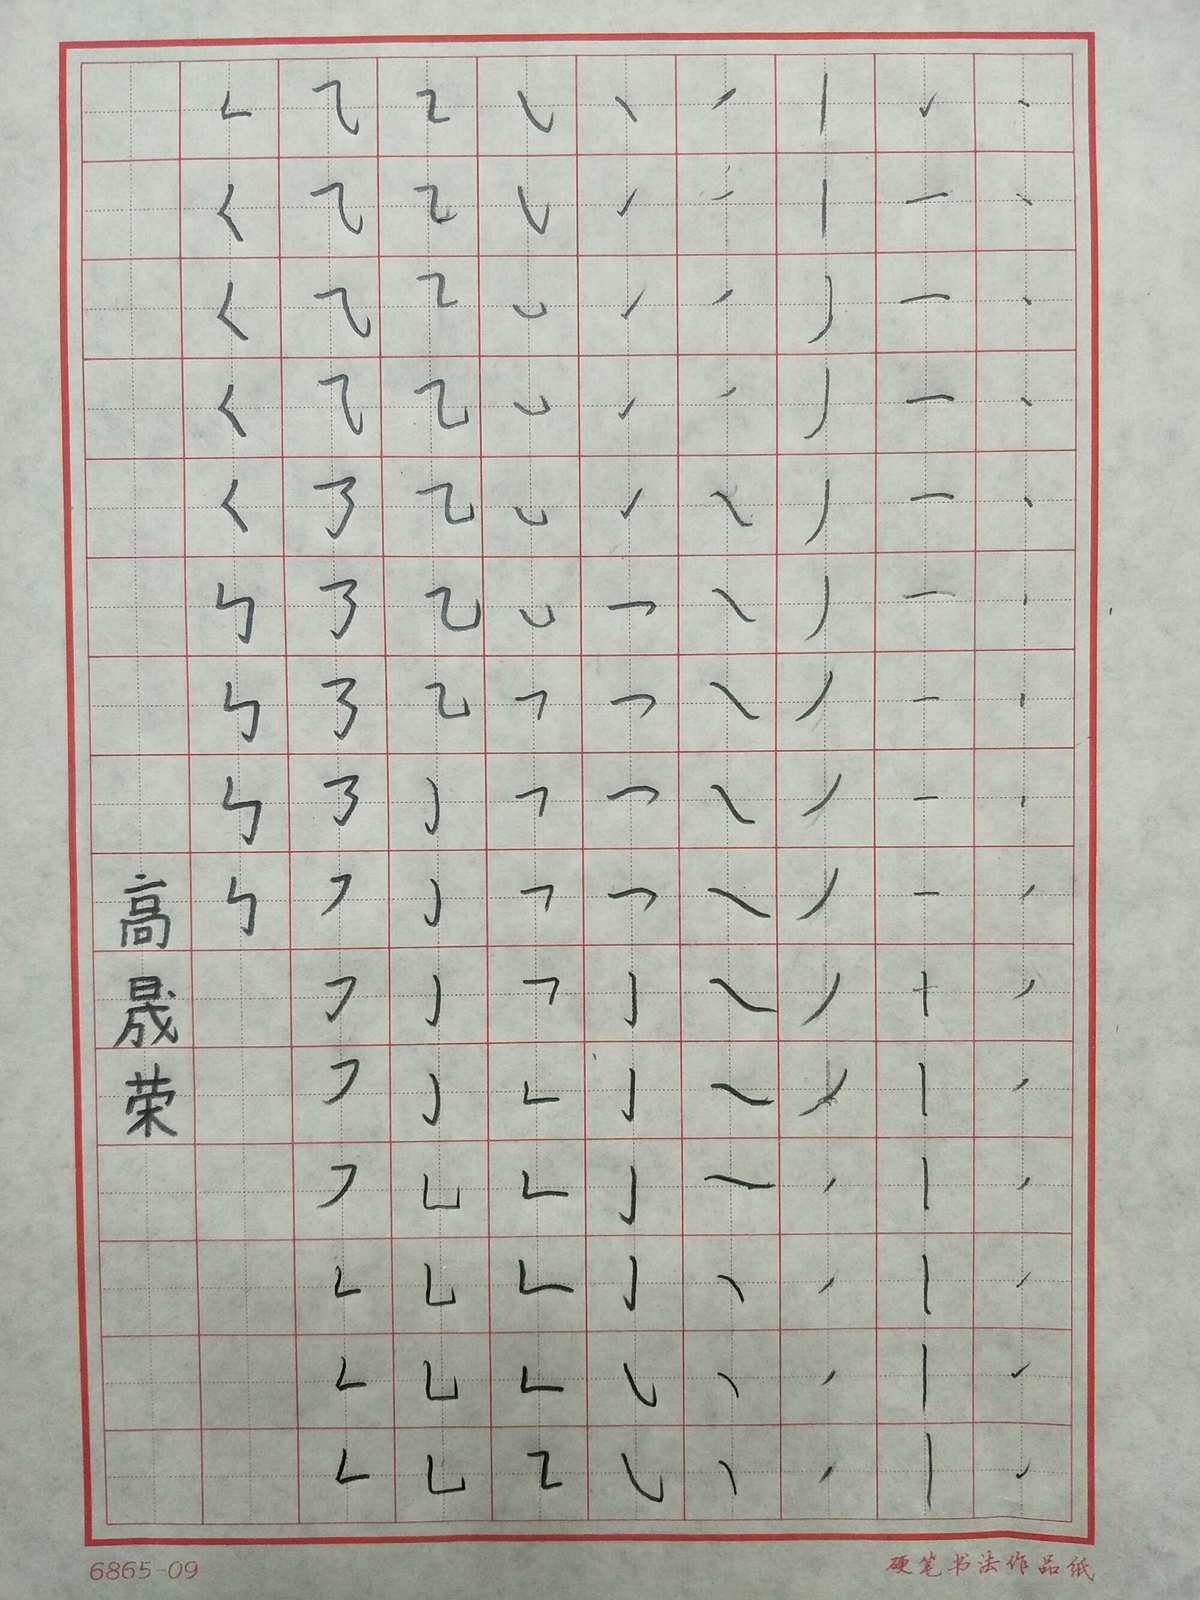 高晟荣
6865-09
硬笔书法作品纸